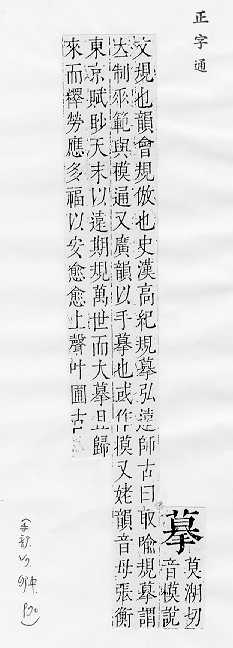 正字通
摹
莫湖切
音模說
文規也韻會規倣也史漢高紀規摹弘遠師古曰取喻規摹謂
立制垂範與模通又廣韻以手摹也或作摸又姥韻音母張衡
東京賦眇天末以遠期規萬世而大摹且歸
來而釋勞應多福以安愈愈上聲叶圃古